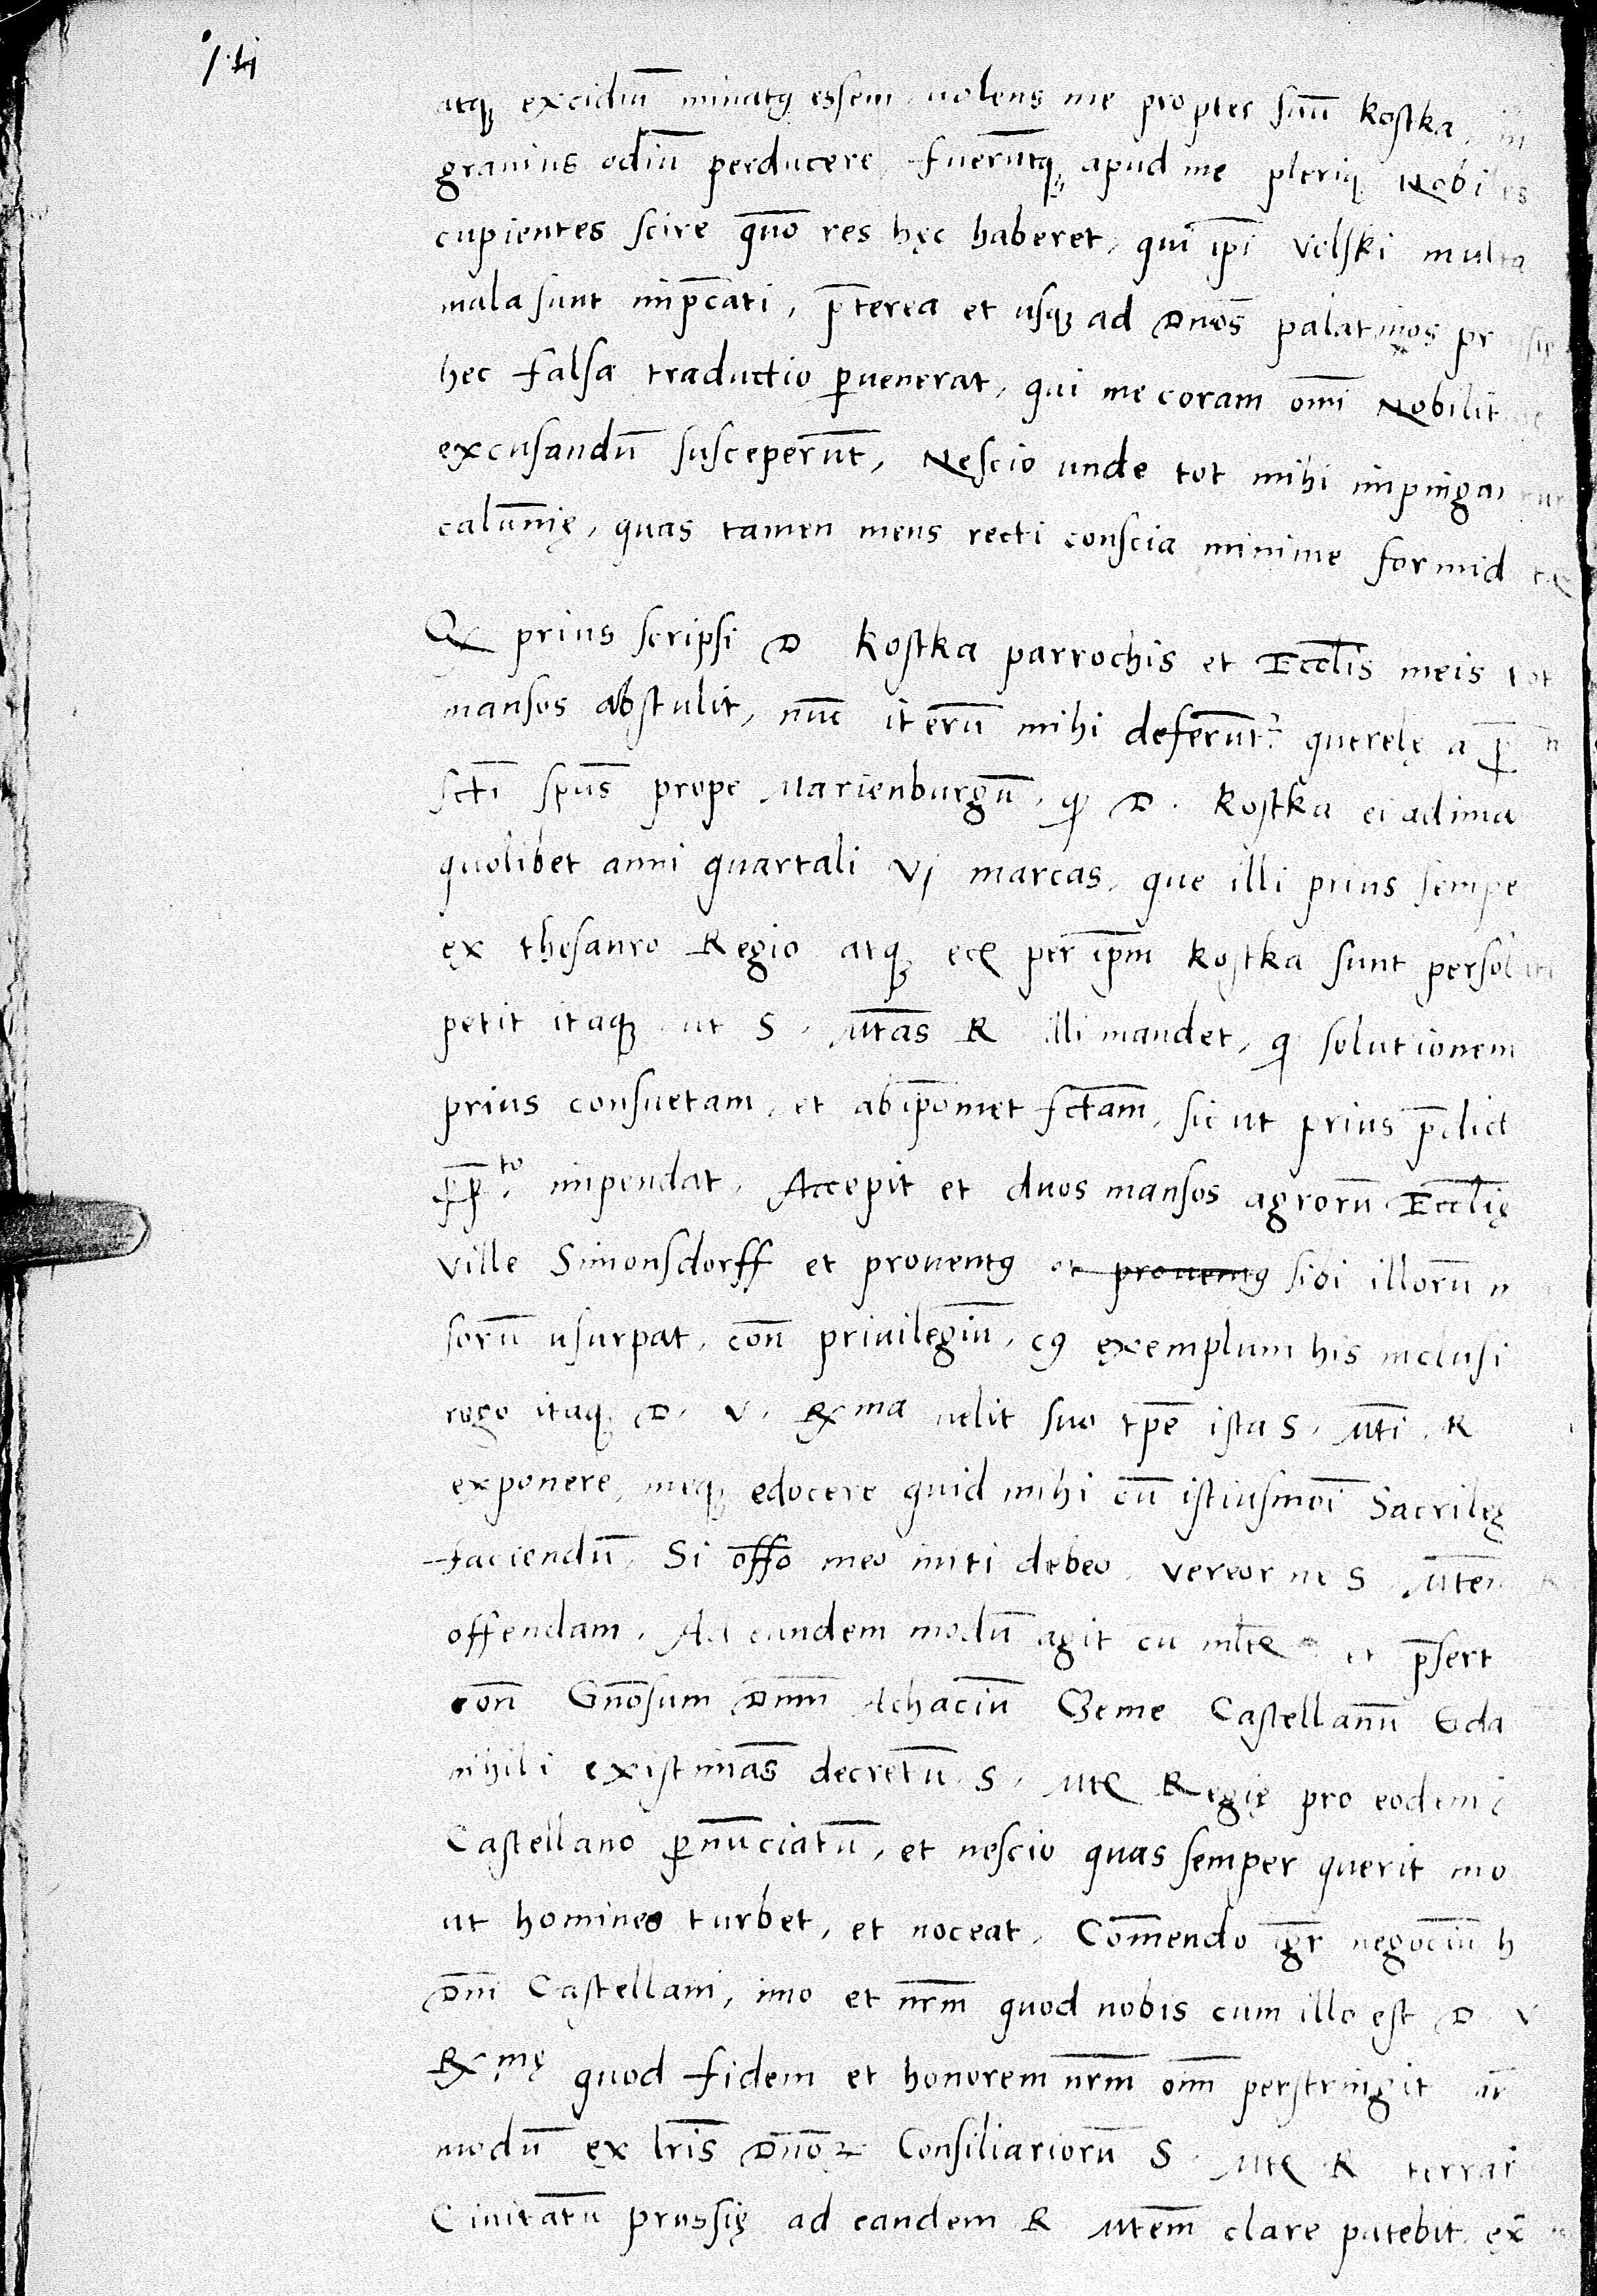 atq₃ excidiū minatꝯ essem, uolens me propter suū kostka, in
grauius odiū perducere, fuerūtq₃ apud me pleriq₃ Nobiles
cupientes scire quō res hęc haberet, qui ip̄i Velski multa
mala sunt imp̄cati, p̄terea et usq₃ ad Dn̄os palatinos
hec falsa traductio ꝑuenerat, qui me coram om̄i Nobilit
excusandū susceperūt, Nescio unde tot mihi impingan
calum̄ię, quas tamen mens recti conscia minime formid
prius scripsi D kostka parrochis et Eccl̄is meis tot
mansos abstulit, nūc iterū mihi deferūt̄ʳ querelę a
sct̄i sp̄us prope Marienburgū, ꝙ D. kostka ei adima
quolibet anni quartali Vj marcas, que illi prius sempe
ex thesauro Regio atq₃ per ip̄m kostka sunt persol
petit itaq₃ ut S. Mtas R illi mandet, ꝙ solutionem
prius consuetam, et ab ip̄omet fct̄am, sic ut prius p̄dict
impendat, Accepit et duos mansos agrorū Eccl̄ię
ville Simonsdorff et prouentꝯ et prouentꝯ sibi illorū
sorū usurpat, con̄ priuilegiū, cꝯ exemplum his inclusi
rogo itaq₃ D. V. Rma uelit suo tp̄e ista S. Mti. R
exponere, meq₃ edocere quid mihi cū istiusmōi Sacrileg
faciendū, Si off̄o meo niti debeo, vereor ne S. Mtem
offendam. Ad eundem modū agit cū et p̄sert
con̄ Gn̄osum Dn̄m Achaciū Czeme Castellanū Gda
nihili existimās decretū S. Mtę Regię pro eodem
Castellano ꝑnūciatū, et nescio quas semper querit mo
ut homines turbet, et noceat, Com̄endo igr̄ negociū h
Dn̄i Castellani, imo et nr̄m quod nobis cum illo est D. V
Rmę quod fidem et honorem nr̄m om̄ perstringit
modū ex lr̄is Dn̄oꝝ Consiliariorū S. Mtę R terrar
Ciuitatū prussię ad eandem R Mtem clare patebit, ex